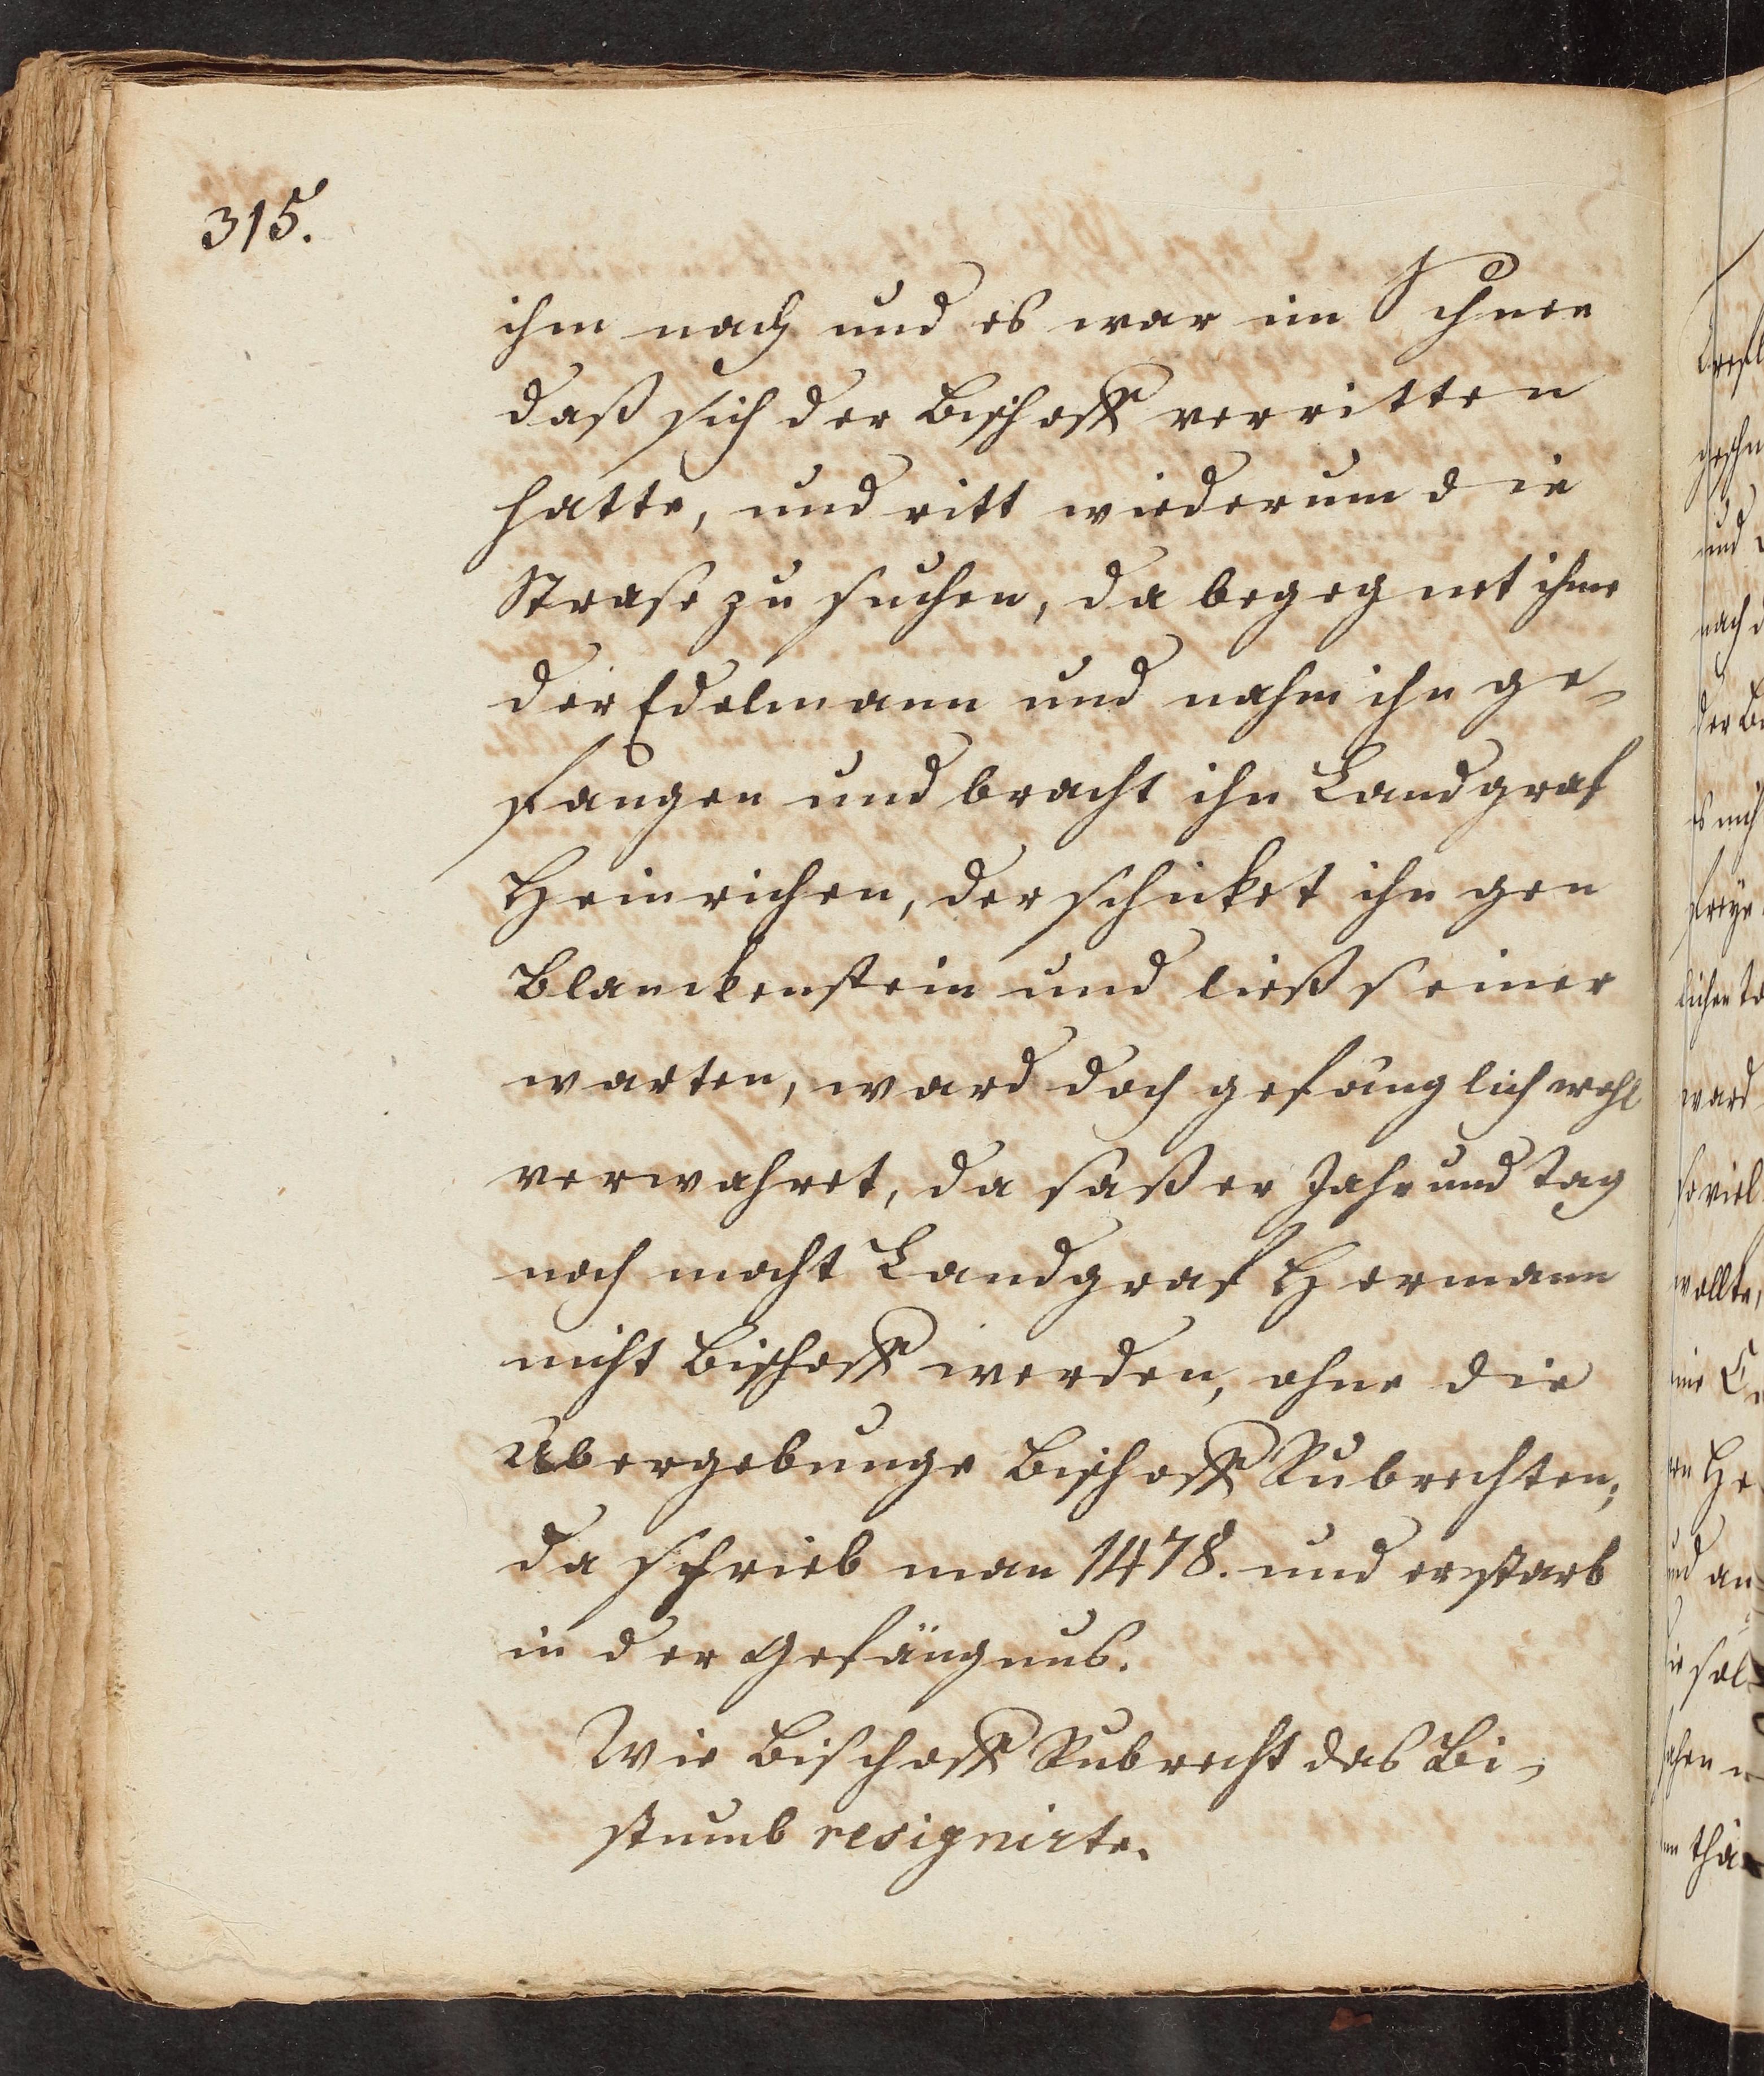 315.
ihm nach und es war im Schnee
daß sich der Bischoff verritten
hatte, und ritt wiederum die
Strase zu suchen, da begegnet ihme
der Edelmann und nahm ihn ge-
fangen und bracht ihn Landgraf
Heinrichen, der schicket ihn gen
Blanckenstein und ließ seiner
warten, ward doch gefänglich wohl
verwahret, da saß er Jahr und Tag
noch mocht Landgraf Hermann
nicht Bischoff werden, ohne die
Übergebunge Bischoff Rubrechten,
da schrieb man 1478. und er starb
in der Gefängnus.
Wie Bischoff Rubrecht das Bi-
stumb resignirte.
und
nach
ward
so viel
wollte,